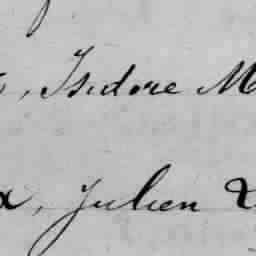 , Isidore M
x, Julien